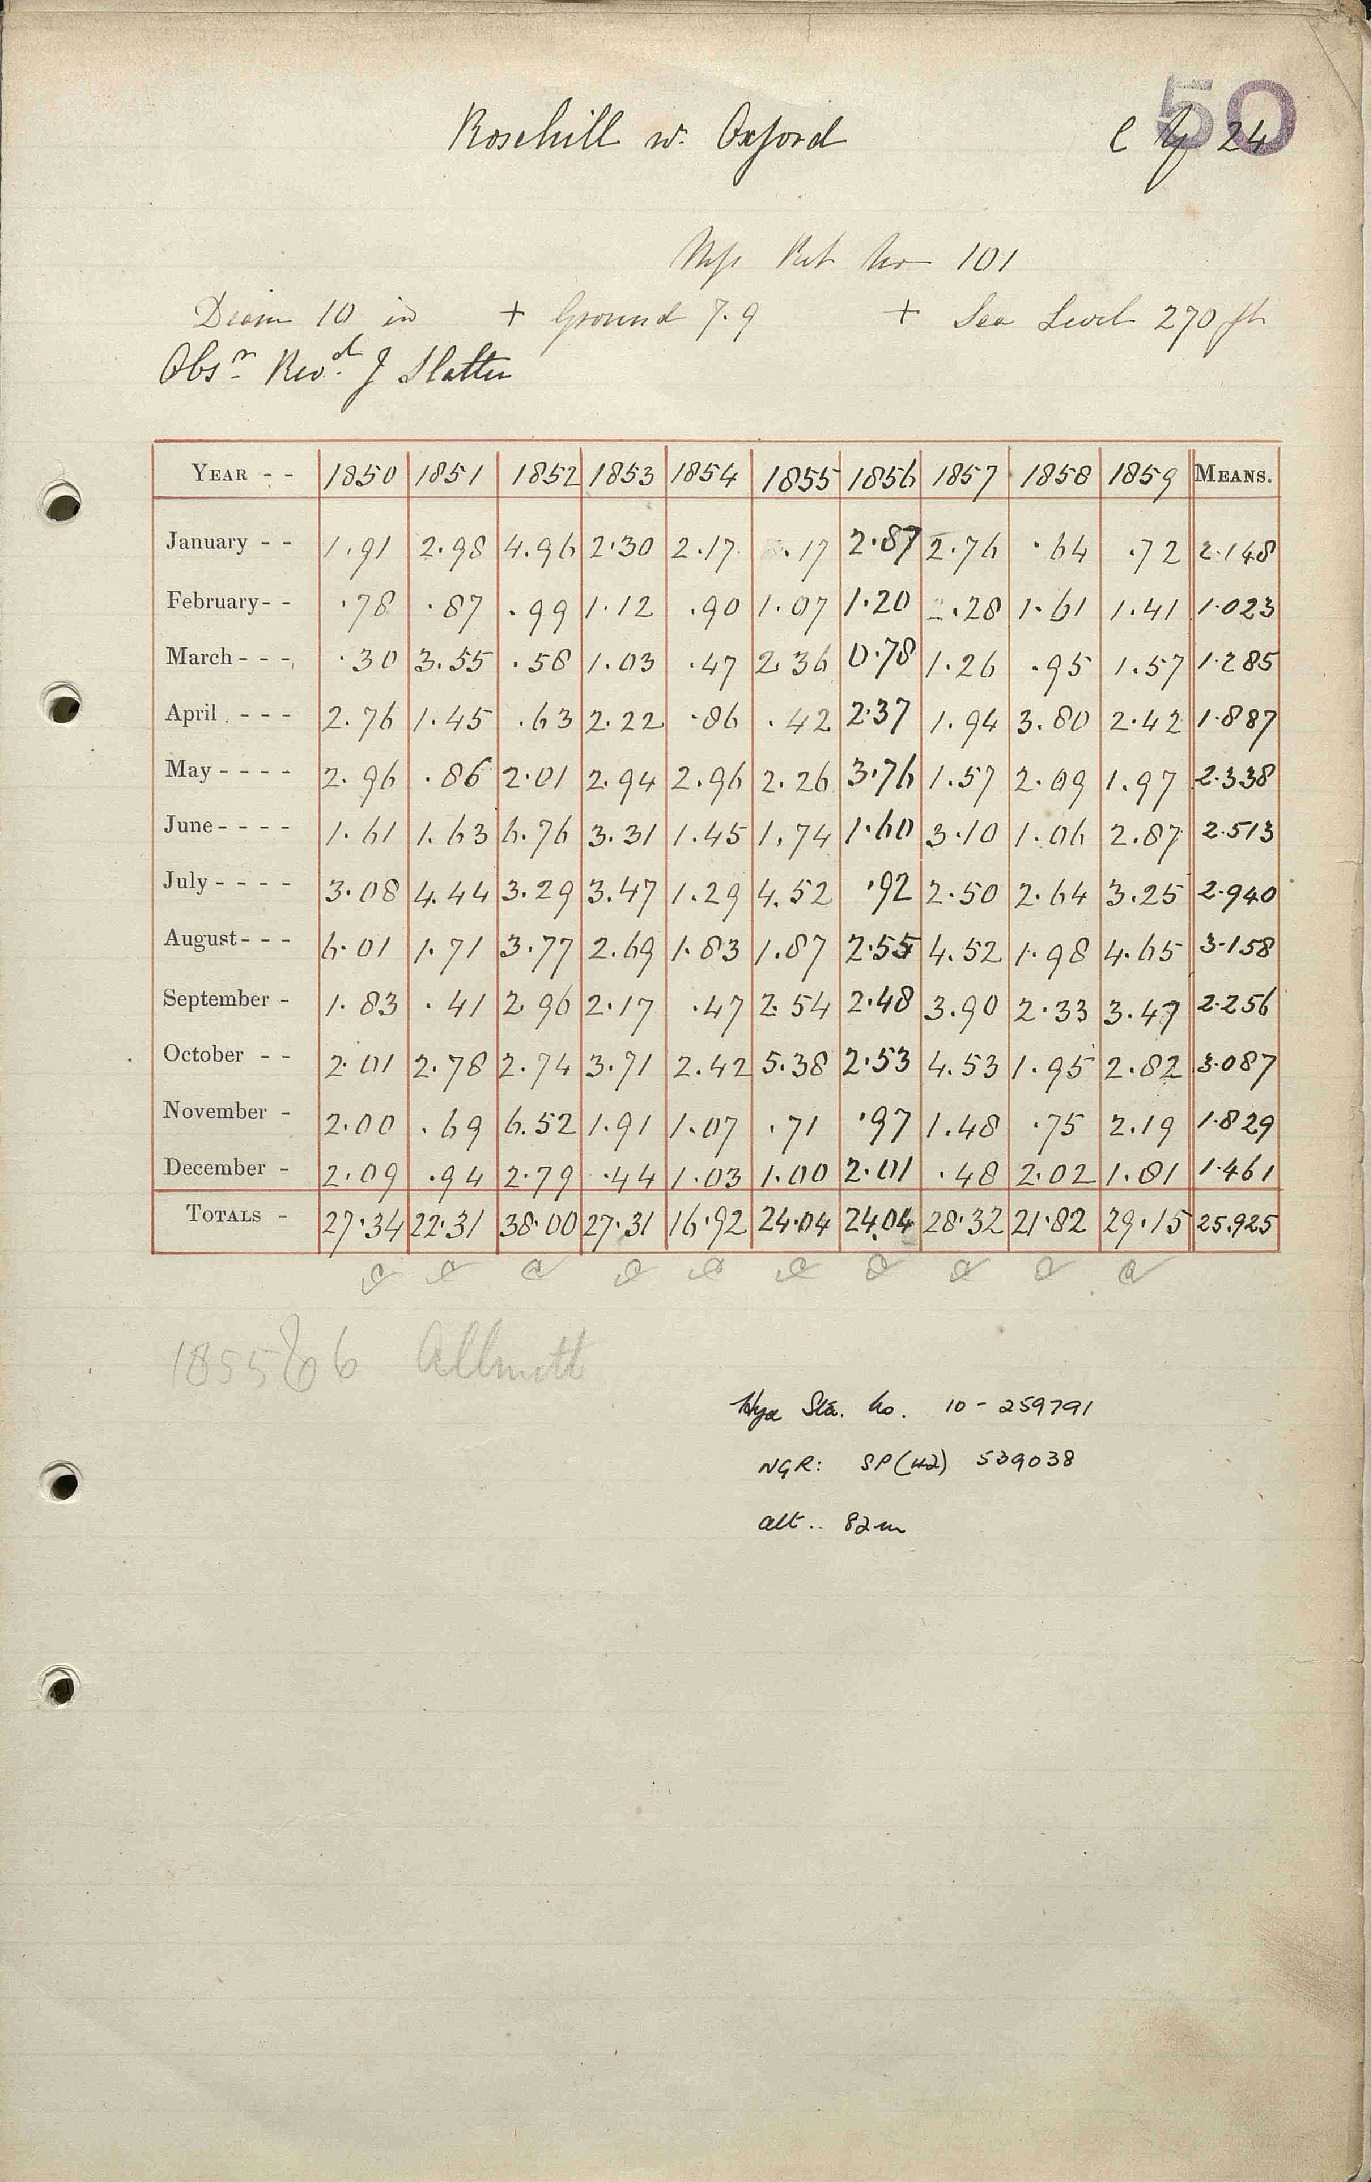 50
Rosehill nr. Oxford
24
Ret No 101
Diam 10 in + Ground 7.9 + Sea Level 270 ft
Obsr. Revd. J Slatter
YEAR - - 1850 1851 1852 1853 1854 1855 1856 1857 1858 1859 MEANS.
January - - 1.91 2.98 4.96 2.30 2.17 .17 2.87 2.76 .64 .72 2.148
February - - .78 .87 .99 1.12 .90 1.07 1.20 .28 1.61 1.41 1.023
March - - - .30 3.55 .58 1.03 .47 2.36 0.78 1.26 .95 1.57 1.285
April - - - 2.76 1.45 .63 2.22 .86 .42 2.37 1.94 3.80 2.42 1.887
May - - - - 2.96 .86 2.01 2.94 2.96 2.26 3.76 1.57 2.09 1.97 2.338
June - - - - 1.61 1.63 6.76 3.31 1.45 1.74 1.60 3.10 1.06 2.87 2.513
July - - - - 3.08 4.44 3.29 3.47 1.29 4.52 .92 2.50 2.64 3.25 2.940
August - - - 6.01 1.71 3.77 2.69 1.83 1.87 2.55 4.52 1.98 4.65 3.158
September - 1.83 .41 2.96 2.17 .47 2.54 2.48 3.90 2.33 3.47 2.256
October - - 2.01 2.78 2.74 3.71 2.42 5.38 2.53 4.53 1.95 2.82 3.087
November - 2.00 .69 6.52 1.91 1.07 .71 .97 1.48 .75 2.19 1.829
December - 2.09 .94 2.79 .44 1.03 1.00 2.01 .48 2.02 1.81 1.461
TOTALS - 27.34 22.31 38.00 27.31 16.92 24.04 24.04 28.32 21.82 29.15 25.925
1855 & 6
Sta. No. 10 - 259791
NGR: SP (42) 539038
alt.. 82m